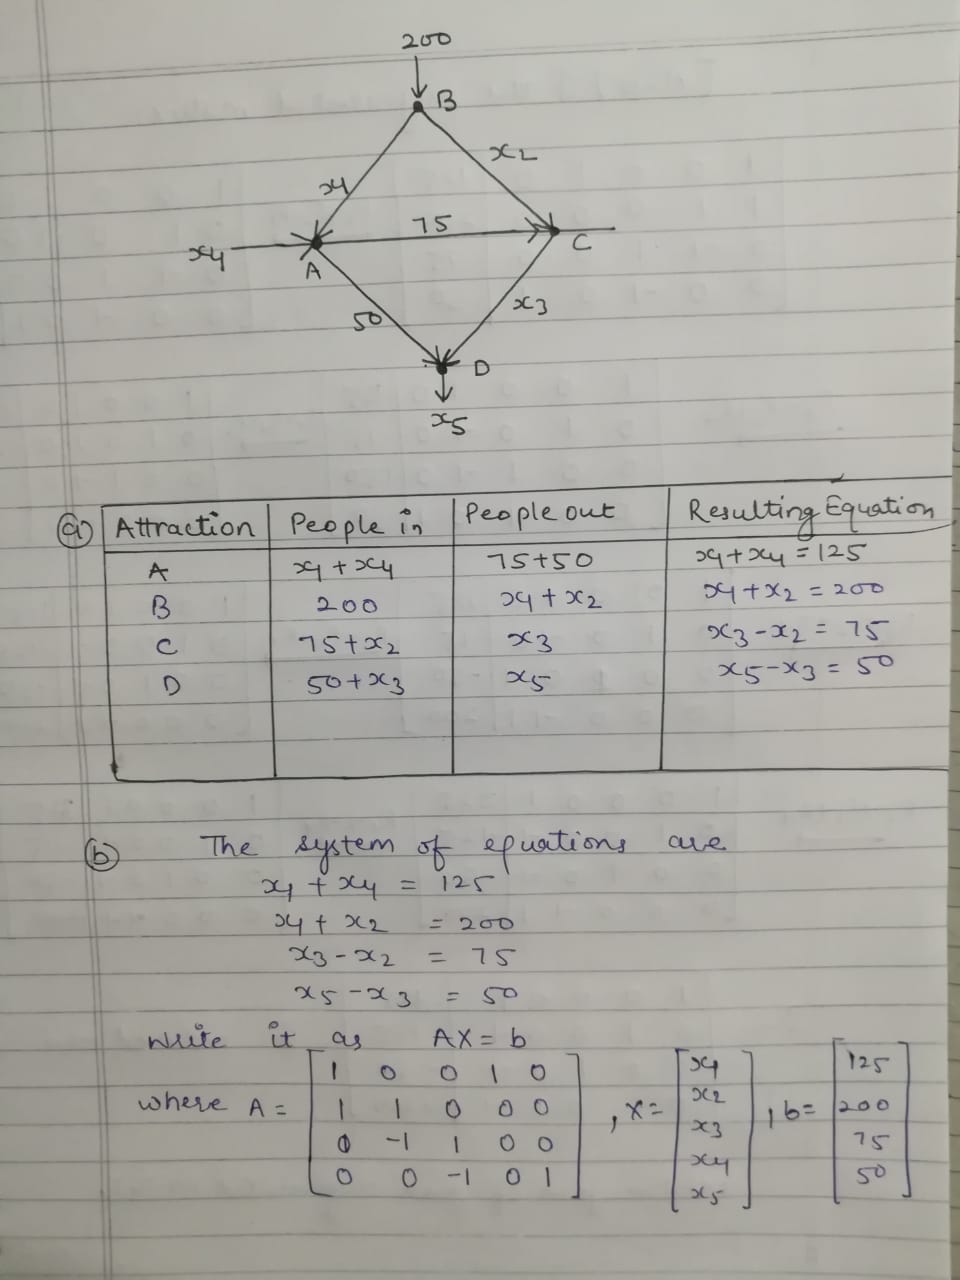 200
B
x2
x1
75
x4
A
C
50
x3
D
x5
(a) Attraction People in People out Resulting Equation
A x1 + x4 75+50 x1 + x4 = 125
B 200 x1 + x2 x1 + x2 = 200
C 75+x2 x3 x3 - x2 = 75
D 50+x3 x5 x5 - x3 = 50
(b) The system of equations are
x1 + x4 = 125
x1 + x2 = 200
x3 - x2 = 75
x5 - x3 = 50
Write it as AX = b
where A = [1 0 0 1 0
1 1 0 0 0
0 -1 1 0 0
0 0 -1 0 1]
, X = [x1
x2
x3
x4
x5]
, b = [125
200
75
50]